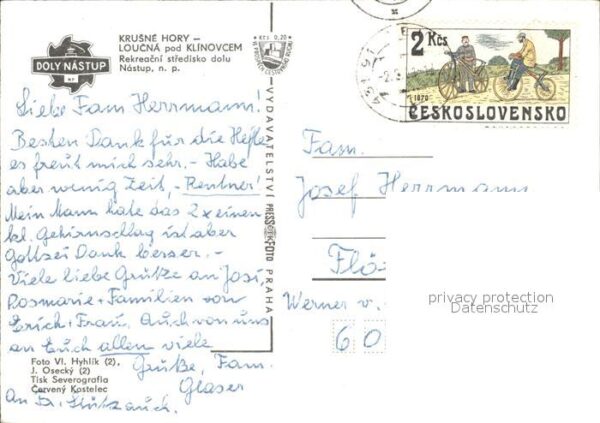 KRUŠNÉ HORY –
LOUČNÁ pod KLÍNOVCEM
Rekreační středisko dolu
Nástup, n. p.
DOLY NÁSTUP
Kčs 0,20
VYDAVATELSTVÍ PRESSFOTO PRAHA
2 Kčs
1870
ČESKOSLOVENSKO
Liebe Fam Herrmann!
Besten Dank für die Hefte
es freut mich sehr. – Habe
aber wenig Zeit, – Rentner!
Mein Mann hate das 2x einen
kl. Gehirnschlag ist aber
Gottsei Dank besser. –
Viele liebe Grüße an Josi,
Rosmarie + Familien von
Erich + Frau. Auch von uns
an Euch allen viele
Grüße, Fam.
Glaser
An Fr. auch.
Foto Vl. Hyhlík (2),
J. Osecký (2)
Tisk Severografia
Červený Kostelec
Fam.
Josef Herrmann
Flö
Werner v.
60
privacy protection
Datenschutz